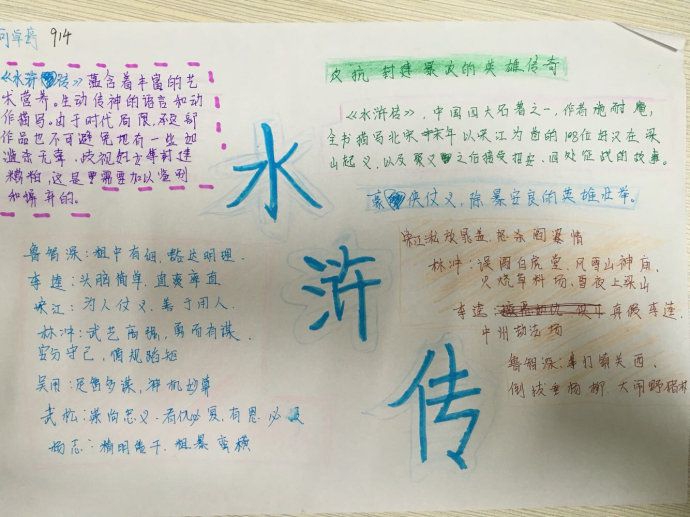 914
《水浒传》蕴含着丰富的艺
术营养。生动传神的语言和动
作描写。由于时代局限,这部
作品也不可避免地有一些如
滥杀无辜,歧视妇女等封建
糟粕,这是需要加以鉴别
和摒弃的。
反抗封建暴政的英雄传奇
《水浒传》,中国四大名著之一,作者施耐庵,
全书描写北宋末年以宋江为首的108位好汉在梁
山起义,以及聚义之后接受招安、四处征战的故事。
豪侠仗义,除暴安良的英雄壮举。
水
浒
传
鲁智深:粗中有细,豁达明理.
李逵:头脑简单,直爽率直
宋江:为人仗义,善于用人.
林冲:武艺高强,勇而有谋.
安分守己,循规蹈矩
吴用:足智多谋,神机妙算
武松:崇尚忠义.有仇必复,有恩必
杨志:精明能干.粗暴蛮横
宋江:私放晁盖,怒杀阎婆惜
林冲:误闯白虎堂,风雪山神庙,
火烧草料场,雪夜上梁山
李逵 真假李逵,
江州劫法场
鲁智深:拳打镇关西,
倒拔垂杨柳,大闹野猪林